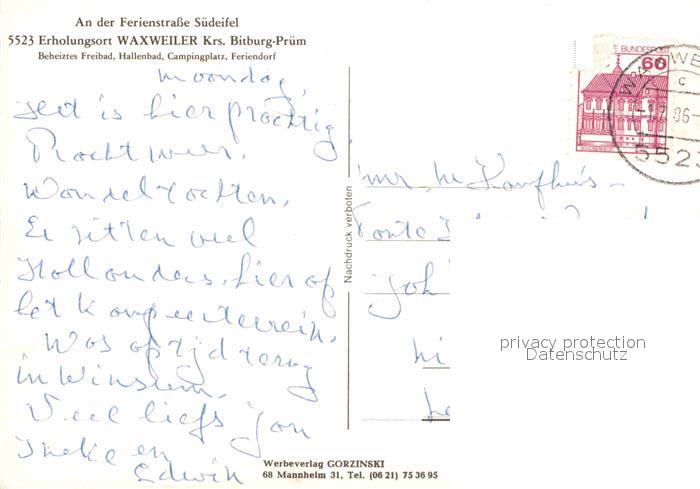 An der Ferienstraße Südeifel
5523 Erholungsort WAXWEILER Krs. Bitburg-Prüm
Beheiztes Freibad, Hallenbad, Campingplatz, Feriendorf
Moondag,
is hier prachtig
Pracht weer.
Wandeltochten.
Er zitten veel
Hollanders, hier op
het Kampeerterrein.
Was op tijd terug
in Winsum.
Veel liefs Jan
Ineke en
Edwin
Nachdruck verboten
BUNDESPOST
60
5523
privacy protection
Datenschutz
Werbeverlag GORZINSKI
68 Mannheim 31, Tel. (06 21) 75 36 95